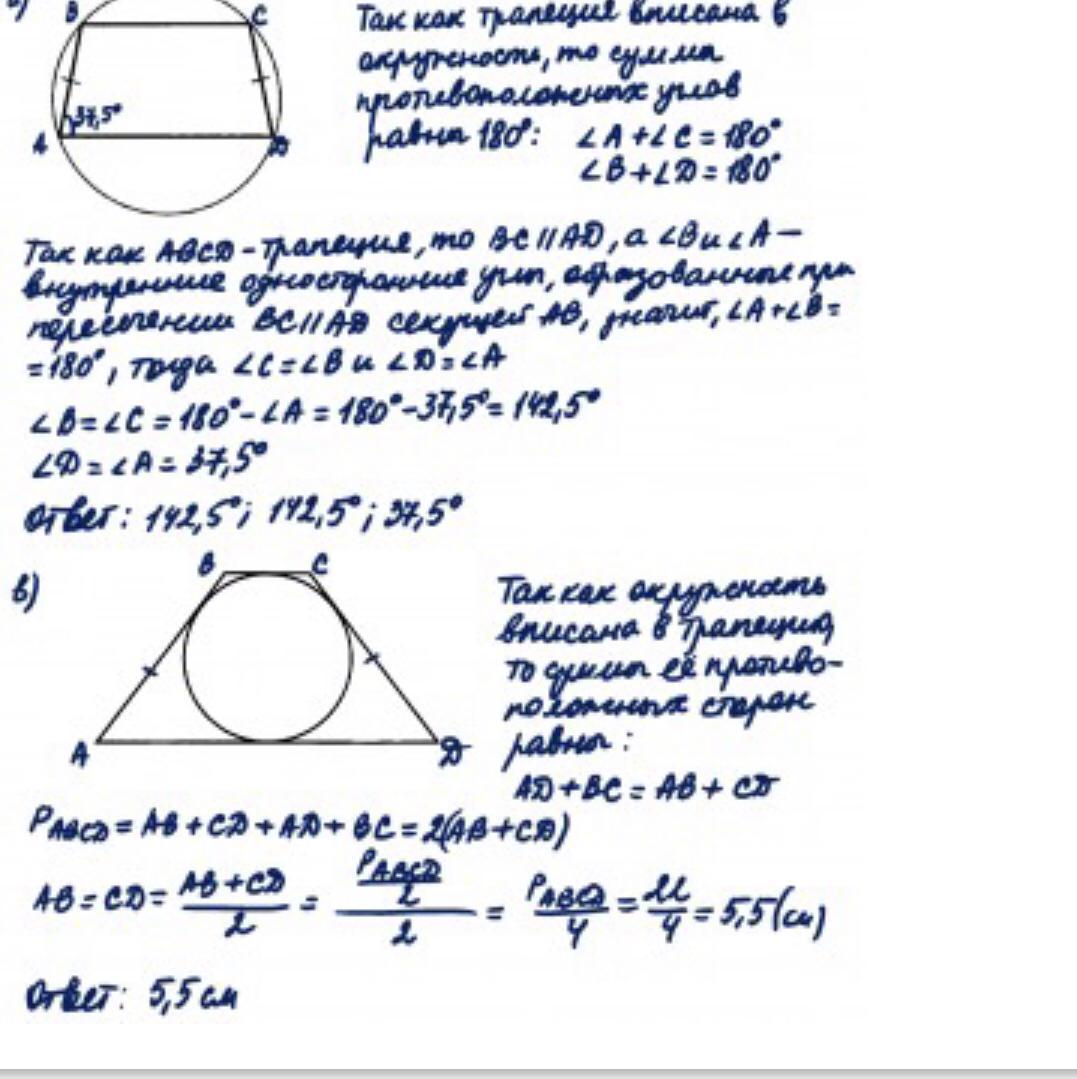 B C
Так как трапеция вписана в
окружность, то сумма
противоположных углов
равны 180°: ∠A + ∠C = 180°
∠B + ∠D = 180°
37,5°
A D
Так как ABCD - трапеция, то BC || AD, а ∠B и ∠A —
внутренние односторонние углы, образованные при
пересечении BC || AD секущей AB, значит, ∠A + ∠B =
= 180°, тогда ∠C = ∠B и ∠D = ∠A
∠B = ∠C = 180° - ∠A = 180° - 37,5° = 142,5°
∠D = ∠A = 37,5°
Ответ: 142,5°; 142,5°; 37,5°
в)
B C
A D
Так как окружность
вписана в трапецию,
то суммы её противо-
положных сторон
равны:
AD + BC = AB + CD
P_ABCD = AB + CD + AD + BC = 2(AB + CD)
AB = CD = (AB + CD)/2 = (P_ABCD/2)/2 = P_ABCD/4 = 22/4 = 5,5 (см)
Ответ: 5,5 см